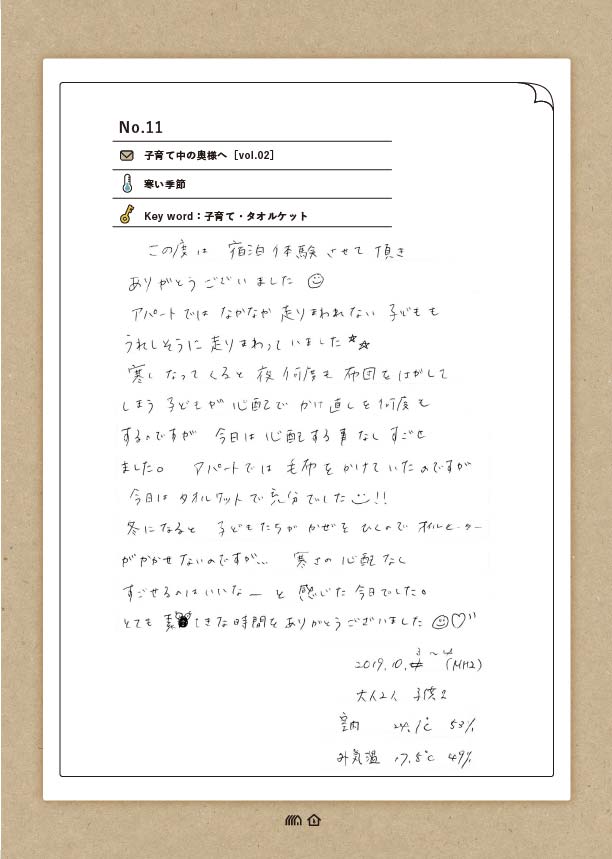 No.11
子育て中の奥様へ［vol.02］
寒い季節
Key word：子育て・タオルケット
この度は 宿泊体験させて頂き
ありがとうございました
アパートでは なかなか 走りまわれない 子どもも
うれしそうに 走りまわっていました☆☆
寒くなってくると 夜 何度も 布団をはがして
しまう 子どもが 心配で かけ直しを何度も
するのですが 今日は 心配する事なし すごせ
ました。 アパートでは 毛布をかけていたのですが
今日は タオルケットで充分でした!!
冬になると 子どもたちが かぜをひくので オイルヒーター
がかかせないのですが… 寒さの心配なし
すごせるのはいいなーと 感じた今日でした。
とても 素てきな時間をありがとうございました♡
2019.10.3～4 (MH2)
大人2人 子供2
室内 24.1℃ 53%
外気温 17.5℃ 49%